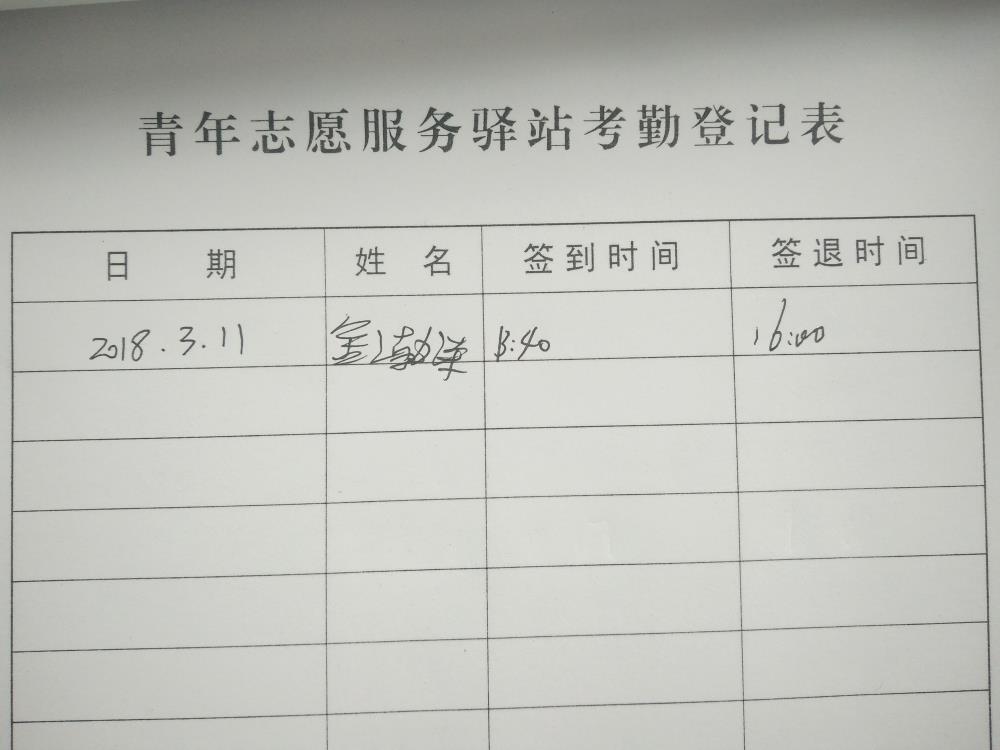 青年志愿服务驿站考勤登记表
日期 姓名 签到时间 签退时间
2018.3.11 13:40 16:00